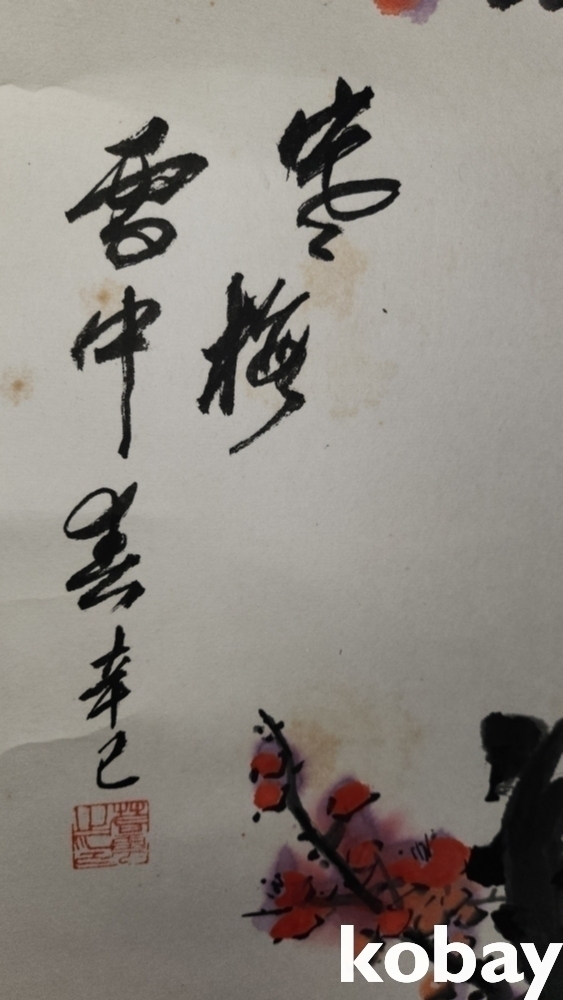 寒
梅
雪中春
辛巳
kobay